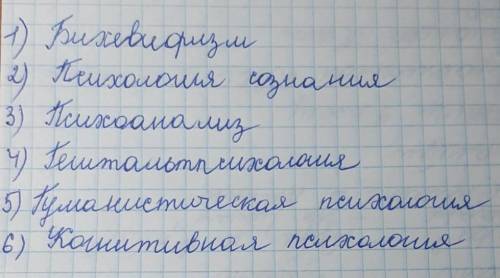 1) Бихевиоризм
2) Психология сознания
3) Психоанализ
4) Гештальтпсихология
5) Гуманистическая психология
6) Когнитивная психология